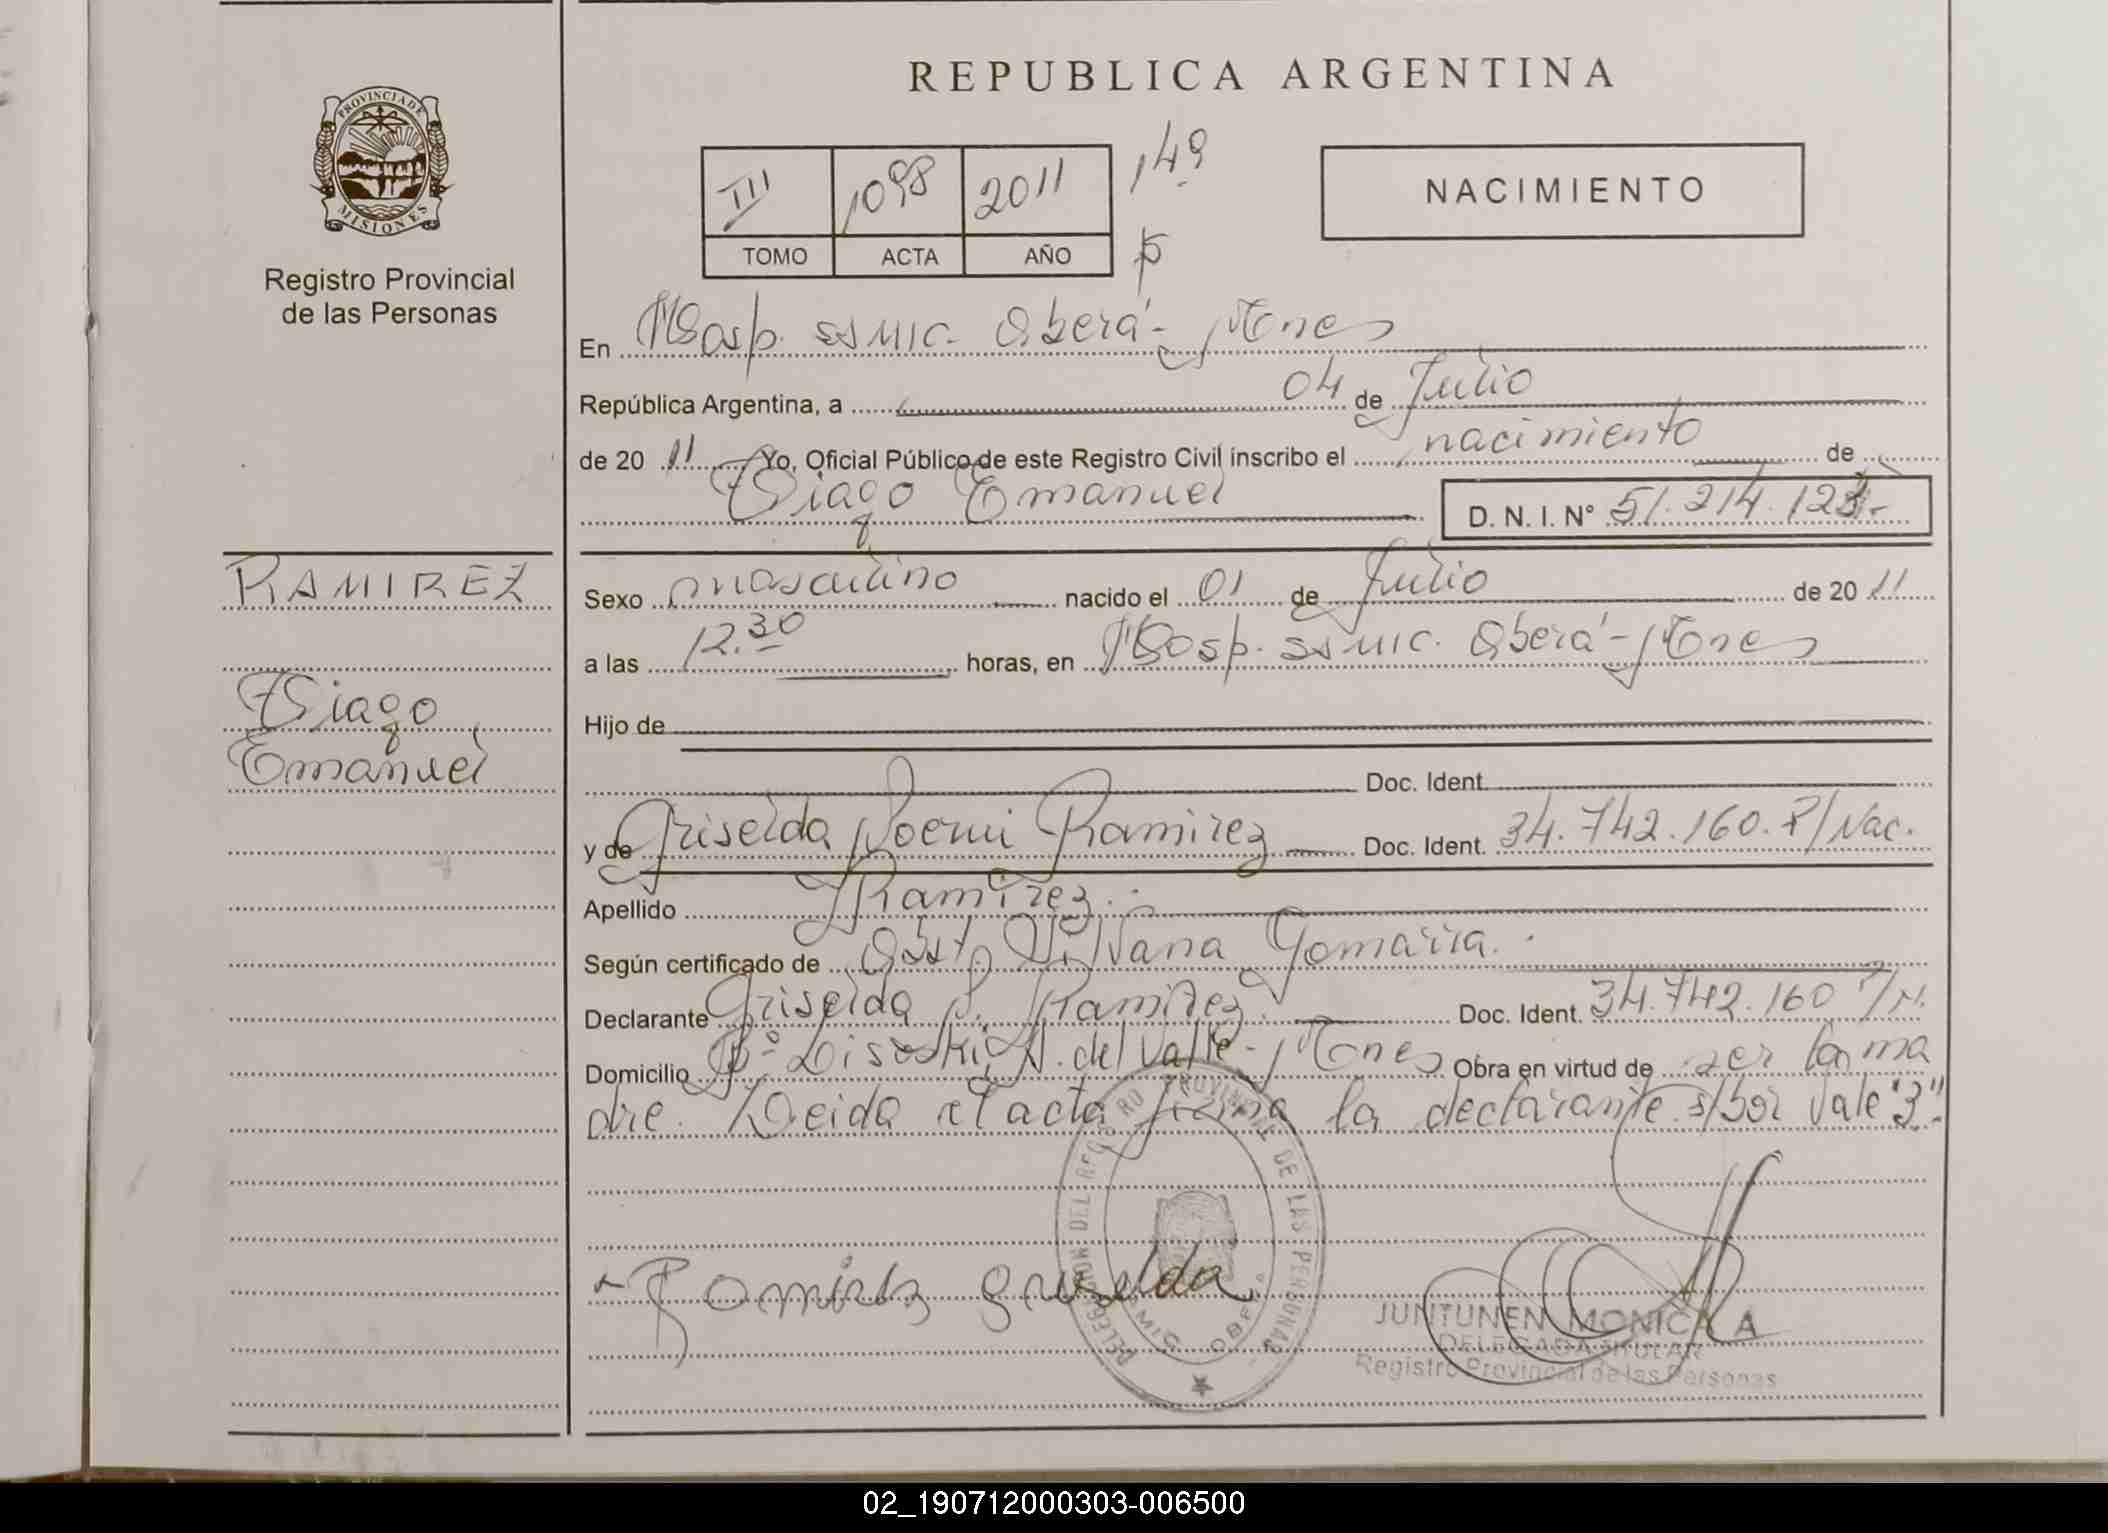 REPUBLICA ARGENTINA
PROVINCIA DE
MISIONES
Registro Provincial
de las Personas
III 1098 2011 149
TOMO ACTA AÑO
NACIMIENTO
En Hosp. SSMIC. Oberá - Mnes
República Argentina, a 04 de Julio
de 20 11 Yo, Oficial Público de este Registro Civil inscribo el nacimiento de
Thiago Emanuel D. N. I. N° 51.214.123.-
RAMIREZ
Thiago
Emanuel
Sexo masculino nacido el 01 de Julio de 20 11
a las 12.30 horas, en Hosp. SSMIC. Oberá - Mnes
Hijo de
Doc. Ident.
y de Griselda Noemi Ramirez Doc. Ident. 34.742.160.
Apellido Ramirez.
Según certificado de Obst. Silvana Gomaira.
Declarante Griselda N. Ramirez. Doc. Ident. 34.742.160
Domicilio A. del Valle - Mnes Obra en virtud de ser la ma
dre. Leida el acta firma la declarante. s/bor Vale "3".
DELEGACION DEL REGISTRO PROVINCIAL DE LAS PERSONAS
Ramirez Griselda
JUNTUNEN MONICA A
DELEGADA TITULAR
Registro Provincial de las Personas
02_190712000303-006500